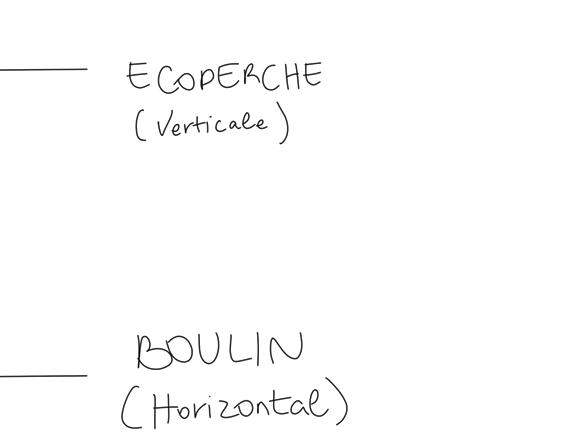 ECOPERCHE
(Verticale)
BOULIN
(Horizontal)